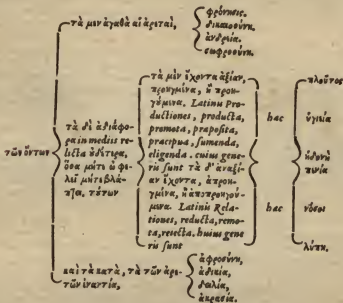 τὰ μὲν ἀγαθὰ αἱ ἀρεταὶ,
φρόνησις.
δικαιοσύνη.
ἀνδρεία.
σωφροσύνη.
τῶν ὄντων
τὰ δὲ ἀδιάφο-
ρα in mediis re-
licta οὐδέτερα,
ὅσα μήτε ὠφε-
λεῖ μήτε βλά-
πτει, τούτων
τὰ μὲν ἔχοντα ἀξίαν,
προηγμένα, ἢ προη-
γούμενα. Latinis Pro-
ductiones, producta,
promota, præposita,
præcipua, sumenda,
eligenda. cuius gene-
ris sunt τὰ δ' ἀναξί-
αν ἔχοντα, ἀποπρο-
ηγμένα, ἢ ἀποπροηγού-
μενα. Latinis Rela-
tiones, reducta, remo-
ta, reiecta. huius gene
ris sunt
hæc
hæc
πλοῦτος
ὑγιεία
ἡδονὴ
πενία
νόσοι
λύπη.
καὶ τὰ κακὰ, τὰ τῶν ἀρε-
τῶν ἐναντία,
ἀφροσύνη,
ἀδικία,
δειλία,
ἀκρασία.